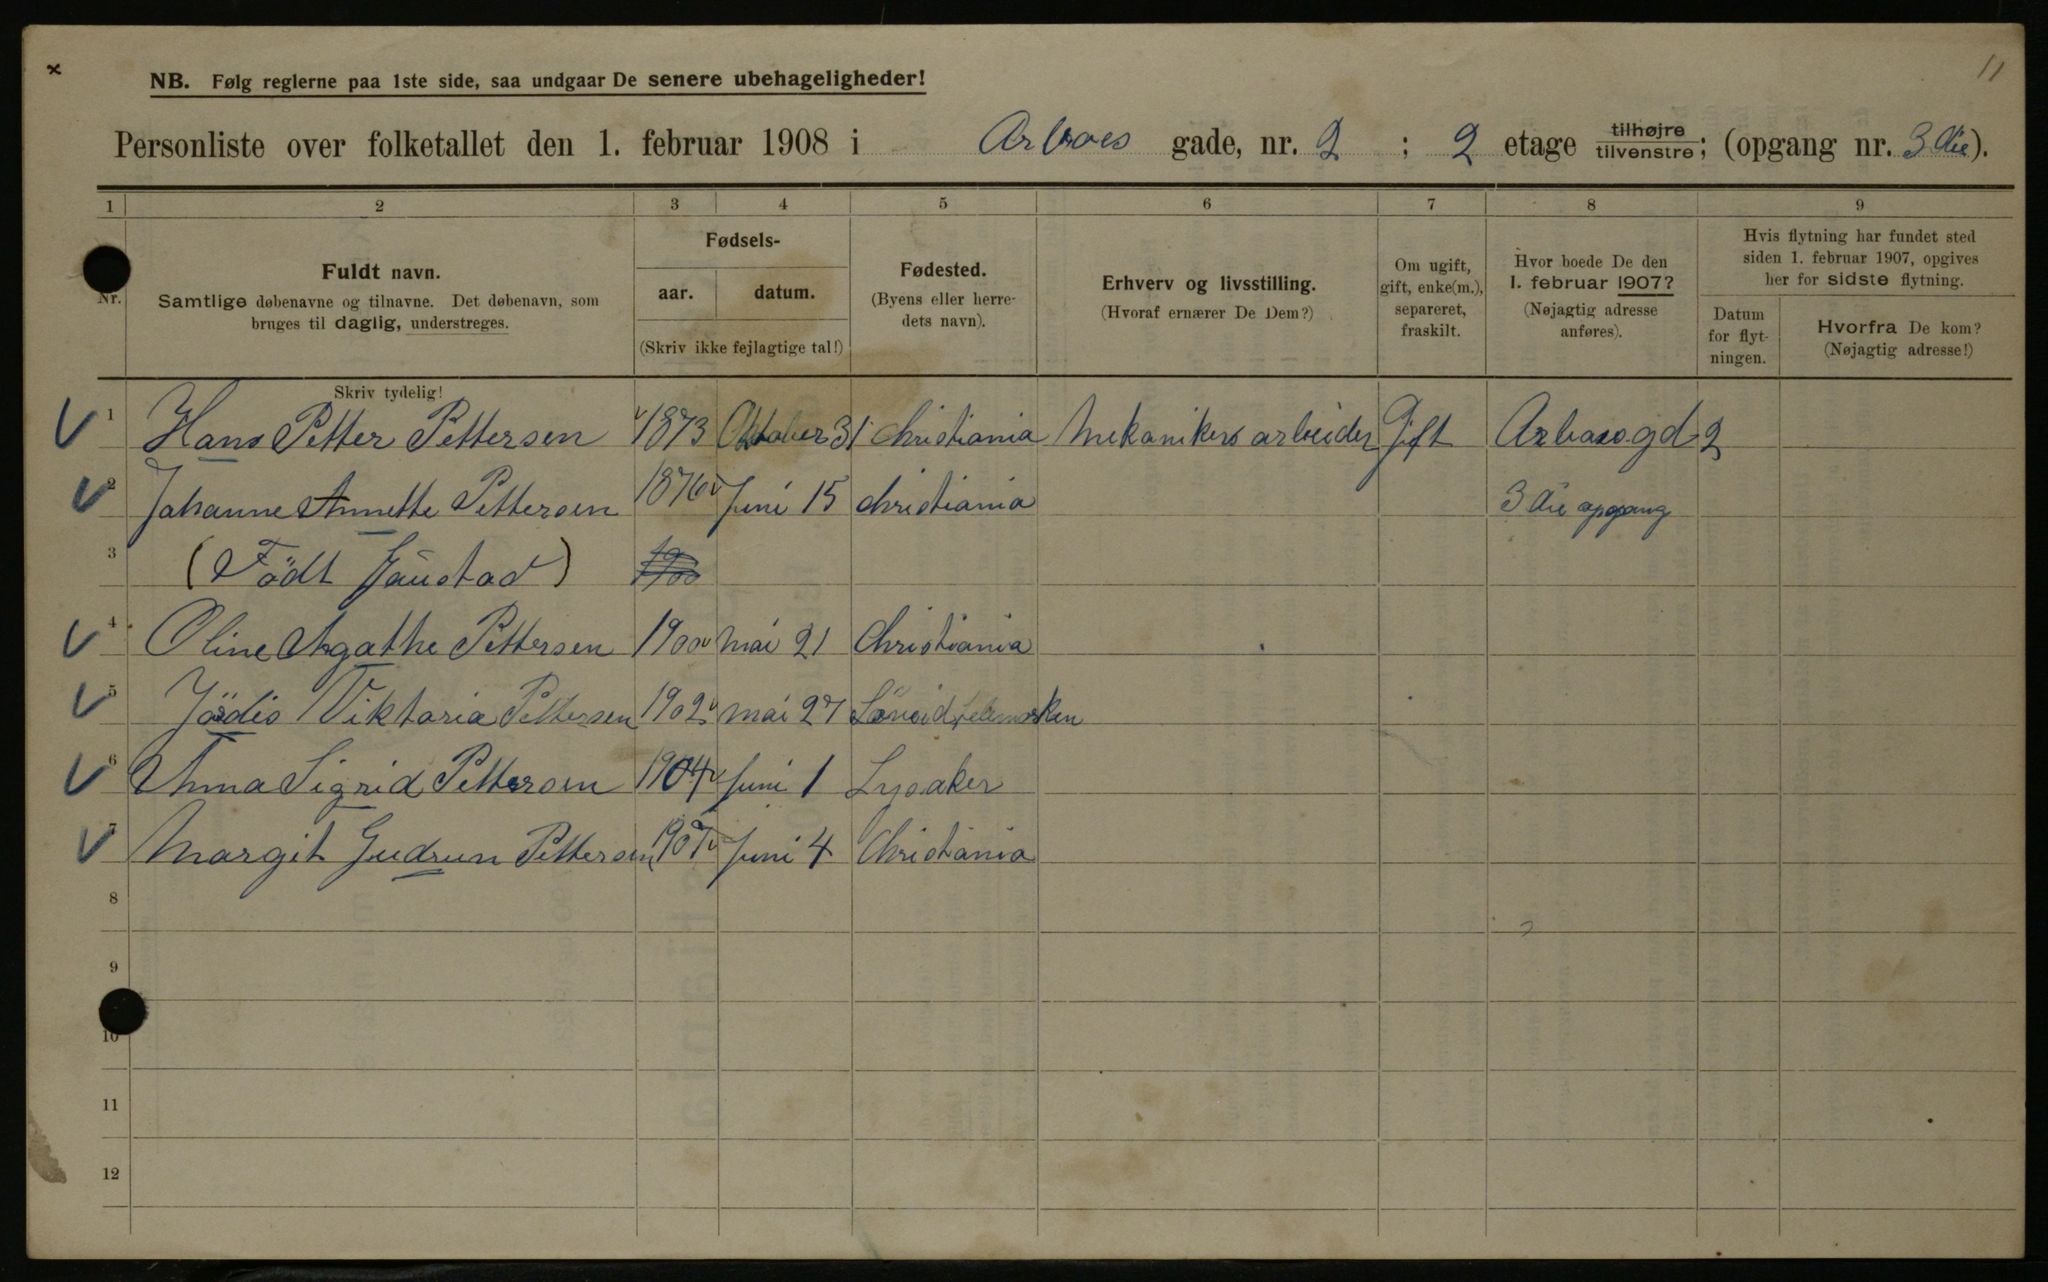 11
NB. Følg reglerne paa 1ste side, saa undgaar De senere ubehageligheder!
Personliste over folketallet den 1. februar 1908 i Arboes gade, nr. 2 ; 2 etage tilhøjre tilvenstre; (opgang nr. 3die).
1 2 3 4 5 6 7 8 9
Nr.
Fuldt navn.
Samtlige døbenavne og tilnavne. Det døbenavn, som
bruges til daglig, understreges.
Skriv tydelig!
Fødsels-
aar. datum.
(Skriv ikke fejlagtige tal!)
Fødested.
(Byens eller herre-
dets navn).
Erhverv og livsstilling.
(Hvoraf ernærer De Dem?)
Om ugift,
gift, enke(m.),
separeret,
fraskilt.
Hvor boede De den
1. februar 1907?
(Nøjagtig adresse
anføres).
Hvis flytning har fundet sted
siden 1. februar 1907, opgives
her for sidste flytning.
Datum
for flyt-
ningen.
Hvorfra De kom?
(Nøjagtig adresse!)
1 Hans Petter Pettersen 1873 Oktober 31 Christiania Mekanikers arbeider Gift Arboesgd 2
2 Johanne Annette Pettersen 1876 Juni 15 Christiania 3die opgang
3 (Födt Gaustad) 1900
4 Oline Agathe Pettersen 1900 Mai 21 Christiania
5 Jördis Viktoria Pettersen 1902 Mai 27 Löveid Telemarken
6 Anna Sigrid Pettersen 1904 Juni 1 Lysaker
7 Margit Gudrun Pettersen 1907 Juni 4 Christiania
8
9
10
11
12